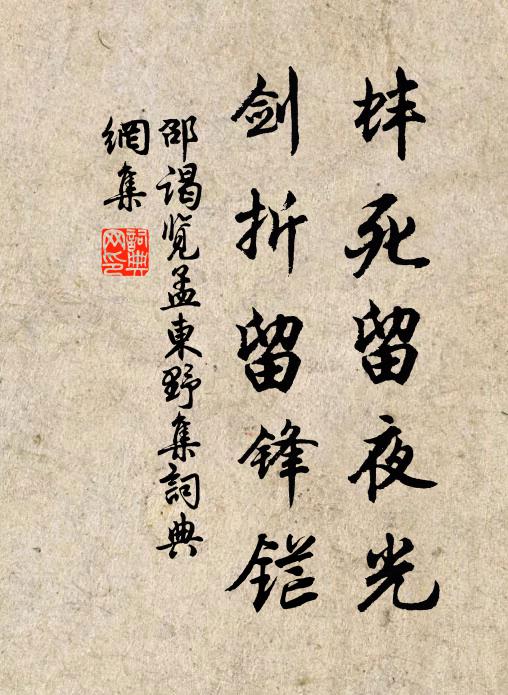 蚌死留夜光
剑折留锋铓
邵谒览孟東野集詞典
網集
詞典
网印